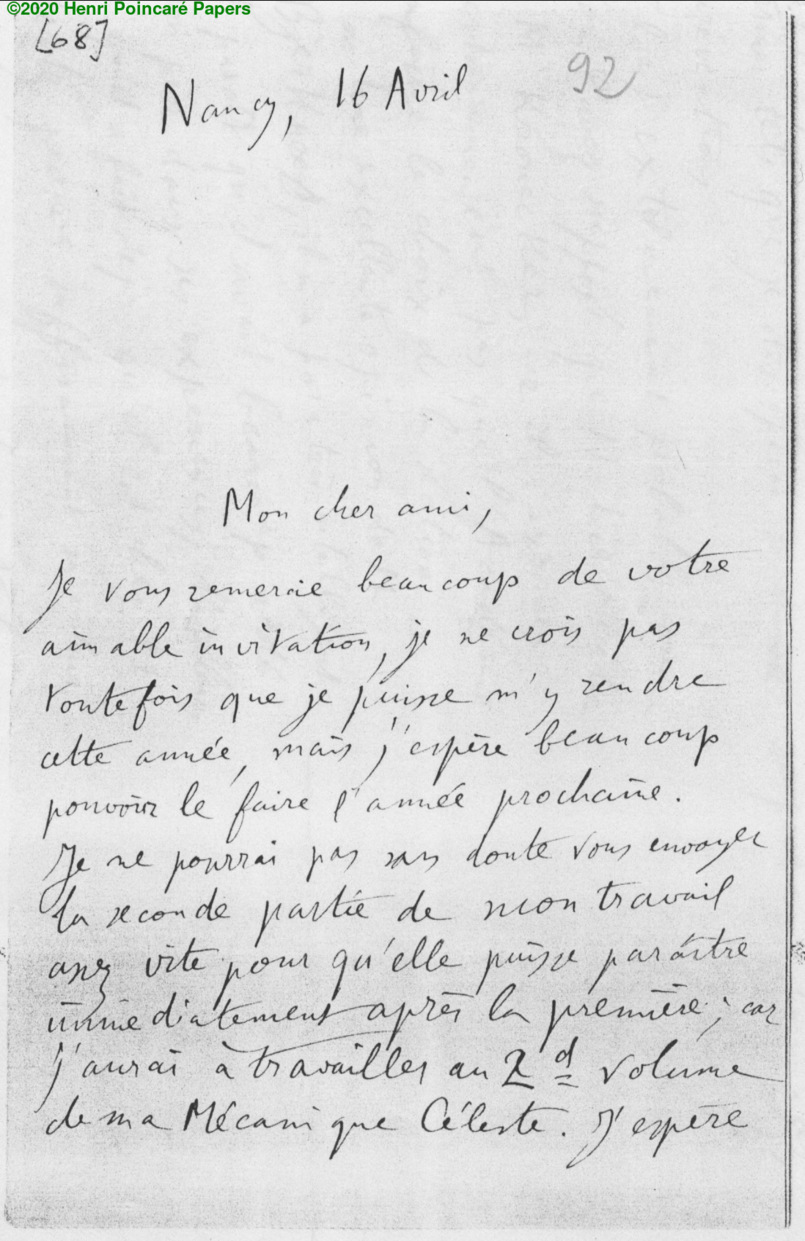 ©2020 Henri Poincaré Papers
[68]
92
Nancy, 16 Avril
Mon cher ami,
Je vous remercie beaucoup de votre
aimable invitation, je ne crois pas
toutefois que je puisse m'y rendre
cette année, mais j'espère beaucoup
pouvoir le faire l'année prochaine.
Je ne pourrai pas sans doute vous envoyer
la seconde partie de mon travail
assez vite pour qu'elle puisse paraître
immédiatement après la première ; car
j'aurai à travailler au 2d volume
de ma Mécanique Céleste. J'espère